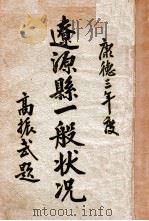 康德三年度
遼源縣一般狀况
高振武題